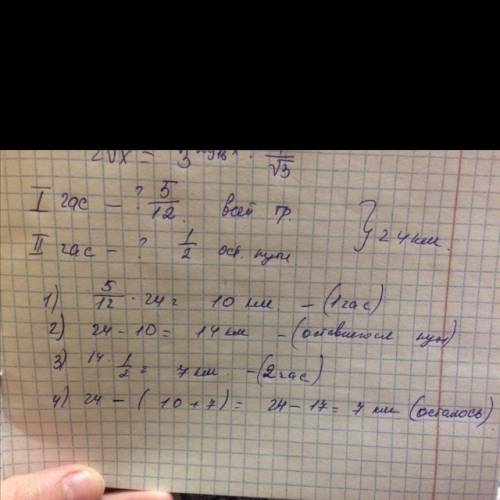 2√x = 3 · 1/√3
I час – ? 5/12 всей тр.
II час – ? 1/2 ост. пути } 24 км.
1) 5/12 · 24 = 10 км – (1 час)
2) 24 – 10 = 14 км – (оставшегося пути)
3) 14 · 1/2 = 7 км – (2 час)
4) 24 – (10 + 7) = 24 – 17 = 7 км (осталось)